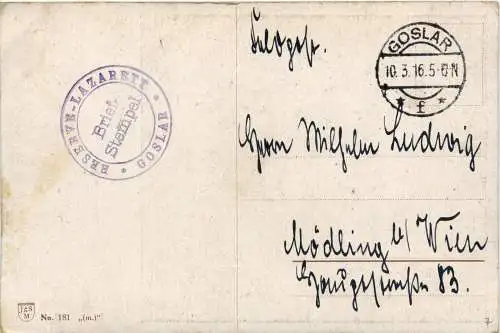 Feldpost.
GOSLAR
10.3.16.5-6N
* f *
RESERVE-LAZARETT * GOSLAR *
Brief
Stempel
Herrn Wilhelm Ludwig
Mödling b/ Wien
Hauptstraße 83.
J&S
M
No. 181 „(m.)"